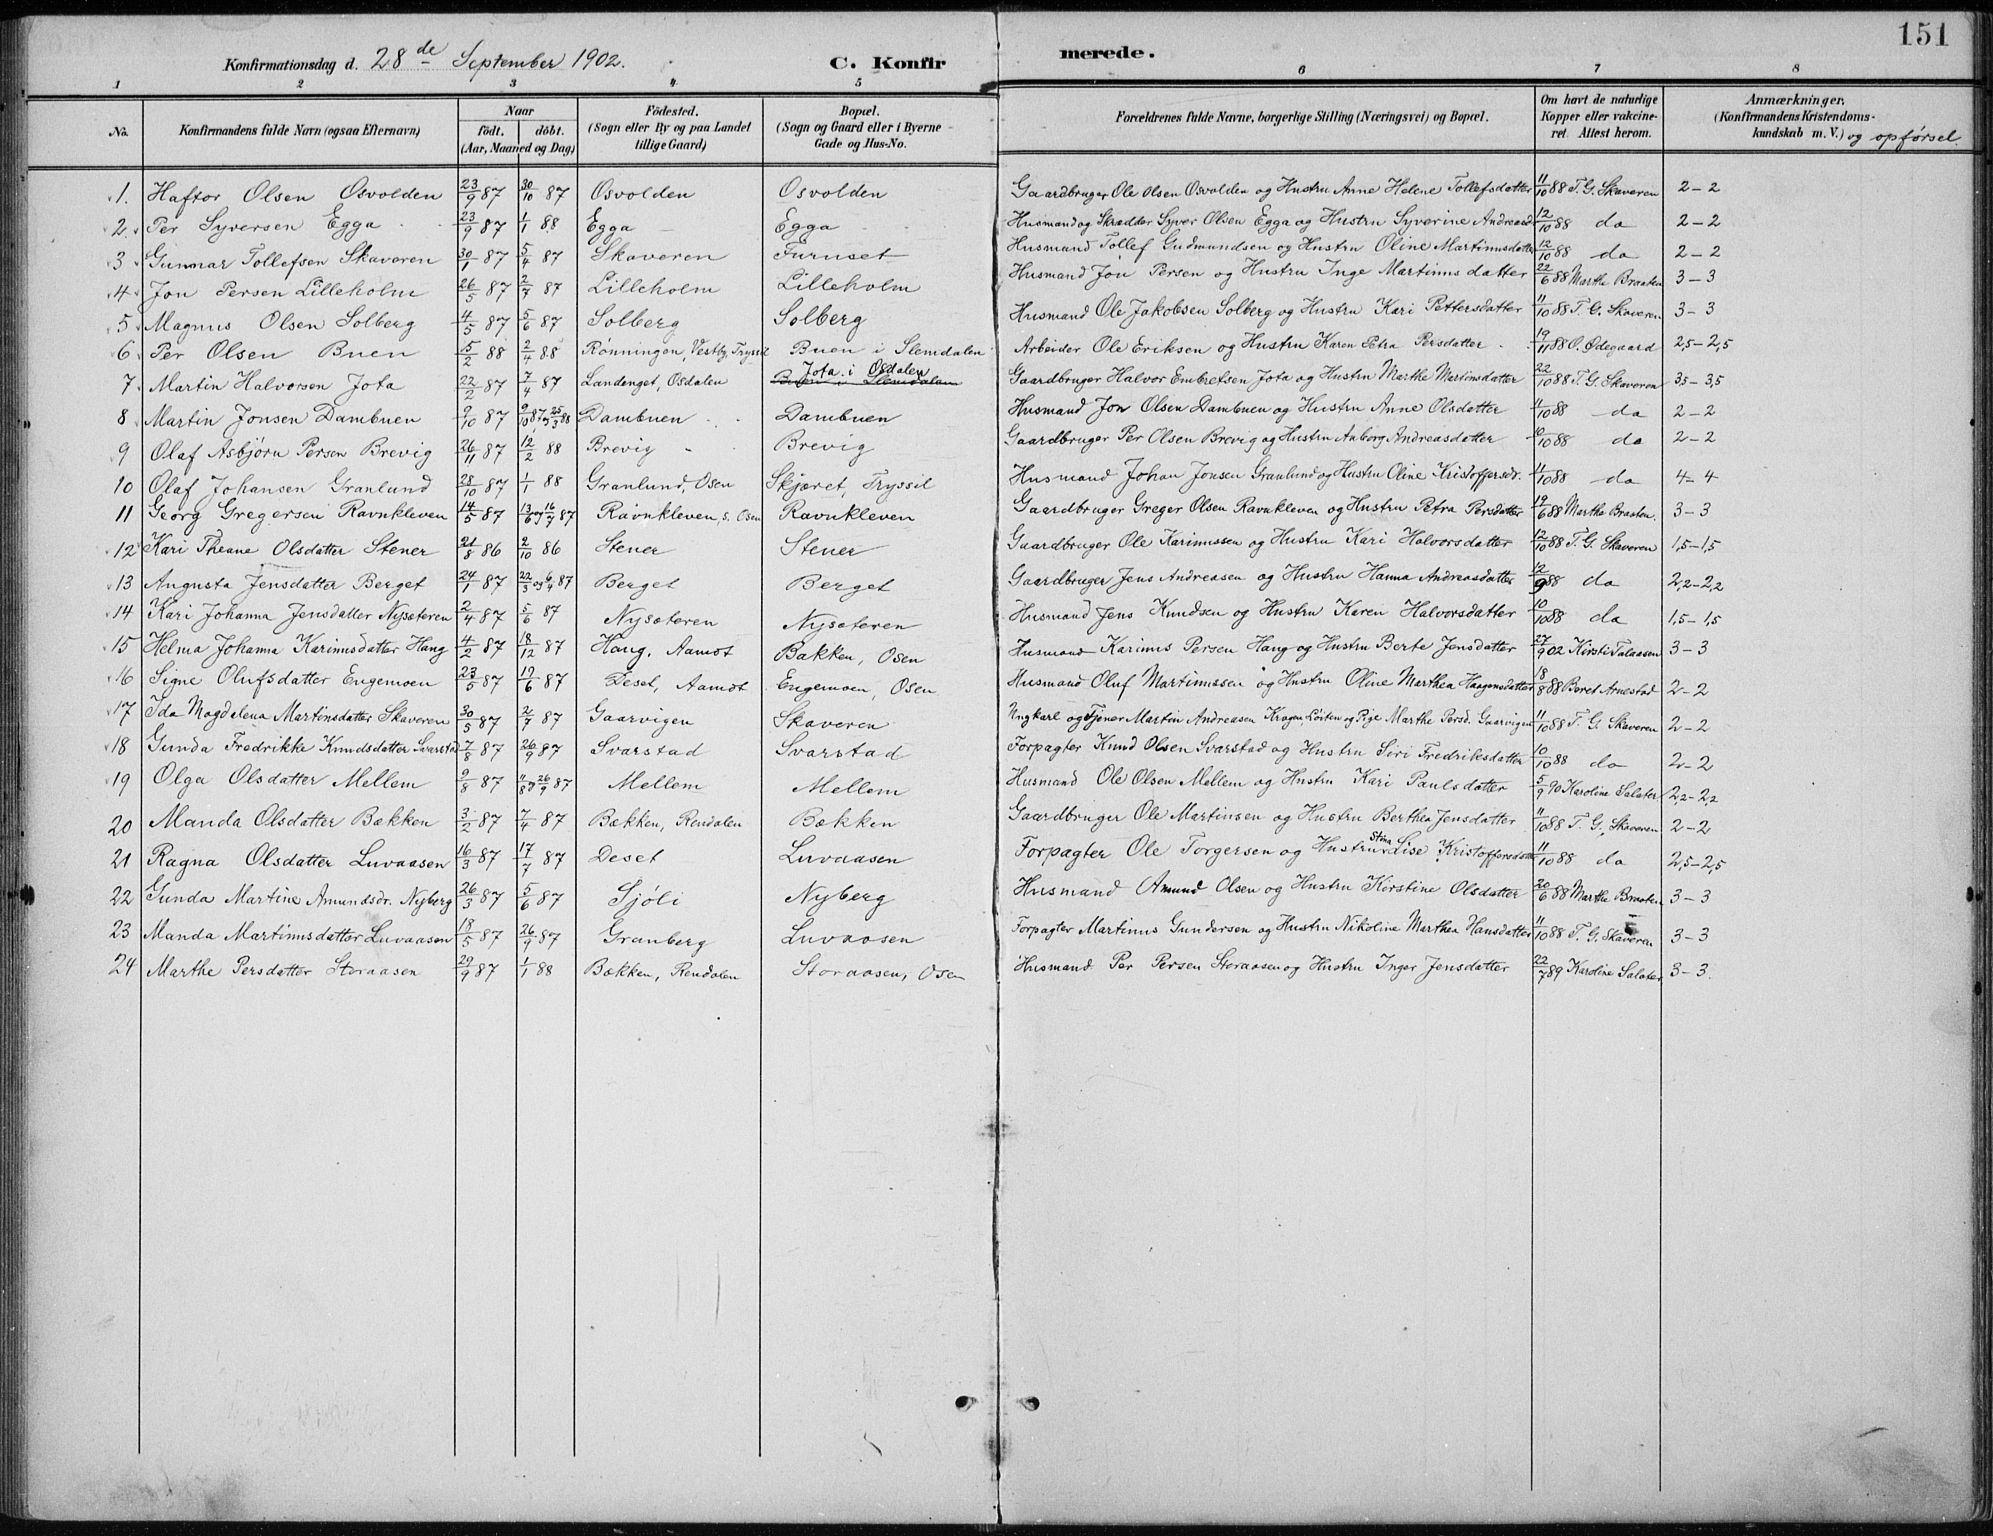 151
Konfirmationsdag d. 28de September 1902. C. Konfirmerede.
1 2 3 4 5 6 7 8
No. Konfirmandens fulde Navn (ogsaa Efternavn) Naar födt. döbt. (Aar, Maaned og Dag) Födested. (Sogn eller By og paa Landet tillige Gaard) Bopæl. (Sogn og Gaard eller i Byerne Gade og Hus-No. Forældrenes fulde Navne, borgerlige Stilling (Næringsvei) og Bopæl. Om havt de naturlige Kopper eller vakcineret. Attest herom. Anmærkninger. (Konfirmandens Kristendomskundskab m. V.) og opførsel.
1. Haftor Olsen Osvolden 23/9 87 30/10 87 Osvolden Osvolden Gaardbruger Ole Olsen Osvolden og Hustru Anne Helene Tollefsdatter 11/10 88 T. G. Skaveren 2-2
2 Per Syversen Egga 23/9 87 1/1 88 Egga Egga Husmand og Skrædder Syver Olsen Egga og Hustru Syverine Andreasd 12/10 88 do 2-2
3 Gunnar Tollefsen Skaveren 30/1 87 5/4 87 Skaveren Furuset Husmand Tollef Gudmundsen og Hustru Oline Martinusdatter 12/10 88 do 2-2
4 Jon Persen Lilleholm 26/5 87 2/7 87 Lilleholm Lilleholm Husmand Jon Persen og Hustru Inge Martinusdatter 22/6 88 Marthe Braaten 3-3
5 Magnus Olsen Solberg 4/5 87 5/6 87 Solberg Solberg Husmand Ole Jakobsen Solberg og Hustru Kari Pettersdatter 11/10 88 T. G. Skaveren 3-3
6 Per Olsen Buen 5/2 88 2/4 88 Rønningen, Vestby, Trysil Buen i Slemdalen Arbeider Ole Eriksen og Hustru Karen Petra Persdatter 19/11 88 O. Ødegaard 2,5-2,5
7 Martin Halvorsen Jota 22/2 87 7/4 87 Landenget, Osdalen Jota i Osdalen Buen i Slemdalen Gaardbruger Halvor Embretsen Jota og Hustru Marthe Martinsdatter 22/10 88 T. G. Skaveren 3,5-3,5
8 Martin Jonsen Dambuen 9/10 87 9/10 87 og 25/3 88 Dambuen Dambuen Husmand Jon Olsen Dambuen og Hustru Anne Olsdatter 11/10 88 do 2-2
9 Olaf Asbjörn Persen Brevig 26/11 87 12/2 88 Brevig Brevig Gaardbruger Per Olsen Brevig og Hustru Aaborg Andreasdatter 10/10 88 do 2-2
10 Olaf Johansen Granlund 28/10 87 1/1 88 Granlund, Osen Skjæret, Trysil Husmand Johan Jonsen Granlund og Hustru Oline Kristoffersdr. 11/10 88 do 4-4
11 Georg Gregersen Ravnkleven 14/5 87 13/6 og 16/7 87 Ravnkleven, s. Osen Ravnkleven Gaardbruger Greger Olsen Ravnkleven og Hustru Petra Persdatter 19/6 88 Marthe Braaten. 3-3
12 Kari Theane Olsdatter Stener 21/8 86 2/10 86 Stener Stener Gaardbruger Ole Karinussen og Hustru Kari Halvorsdatter 12/10 88 T. G. Skaveren 1,5-1,5
13 Augusta Jensdatter Berget 24/1 87 22/3 og 6/4 87 Berget Berget Gaardbruger Jens Andreasen og Hustru Hanna Andreasdatter 12/9 88 do 2,2-2,2
14 Kari Johanna Jensdatter Nysæteren 2/4 87 5/6 87 Nysæteren Nysæteren Husmand Jens Knudsen og Hustru Karen Halvorsdatter 10/10 88 do 1,5-1,5
15 Helma Johanna Karinusdatter Haug 4/2 87 18/12 87 Haug, Aamot Bakken, Osen Husmand Karinus Persen Haug og Hustru Berte Jensdatter 27/9 02 Kirsti Talaasen 3-3
16 Signe Olufsdatter Engemoen 23/5 87 19/6 87 Deset, Aamot Engemoen, Osen Husmand Oluf Martinussen og Hustru Oline Marthea Haagensdatter 18/8 88 Beret Arnestad 2-2
17 Ida Magdalena Martinsdatter Skaveren 30/5 87 2/7 87 Gaarvigen Skaveren Ungkarl og Tjener Martin Andreasen Kragen Löiten og Pige Marthe Persd. Gaarvigen 11/10 88 T. G. Skaveren 2-2
18 Gunda Fredrikke Knudsdatter Svarstad 7/8 87 26/9 87 Svarstad Svarstad Forpagter Knud Olsen Svarstad og Hustru Siri Fredriksdatter 10/10 88 do 2-2
19 Olga Olsdatter Mellem 9/8 87 11/8 og 26/9 87 Mellem Mellem Husmand Ole Olsen Mellem og Hustru Kari Paulsdatter 5/9 90 Karoline Salater 2,2-2,2
20 Manda Olsdatter Bækken 3/2 87 7/4 87 Bækken, Rendalen Bækken Gaardbruger Ole Martinsen og Hustru Berthea Jensdatter 11/10 88 T. G. Skaveren 2-2
21 Ragna Olsdatter Luvaasen 16/3 87 17/7 87 Deset Luvaasen Forpagter Ole Torgersen og Hustru Stina Lise Kristoffersdatter 11/10 88 do 2,5-2,5
22 Gunda Martine Amundsdr. Nyberg 26/3 87 5/6 87 Sjöli Nyberg Husmand Amund Olsen og Hustru Kirstine Olsdatter 20/6 88 Marthe Braaten 3-3
23 Manda Martinusdatter Luvaasen 18/5 87 26/9 87 Granberg Luvaasen Forpagter Martinus Gundersen og Hustru Nikoline Marthea Hansdatter 11/10 88 T. G. Skaveren 3-3
24 Marthe Persdatter Storaasen 29/9 87 1/1 88 Bækken, Rendalen Storaasen, Osen Husmand Per Persen Storaasen og Hustru Inger Jensdatter 22/7 89 Karoline Salater 3-3.